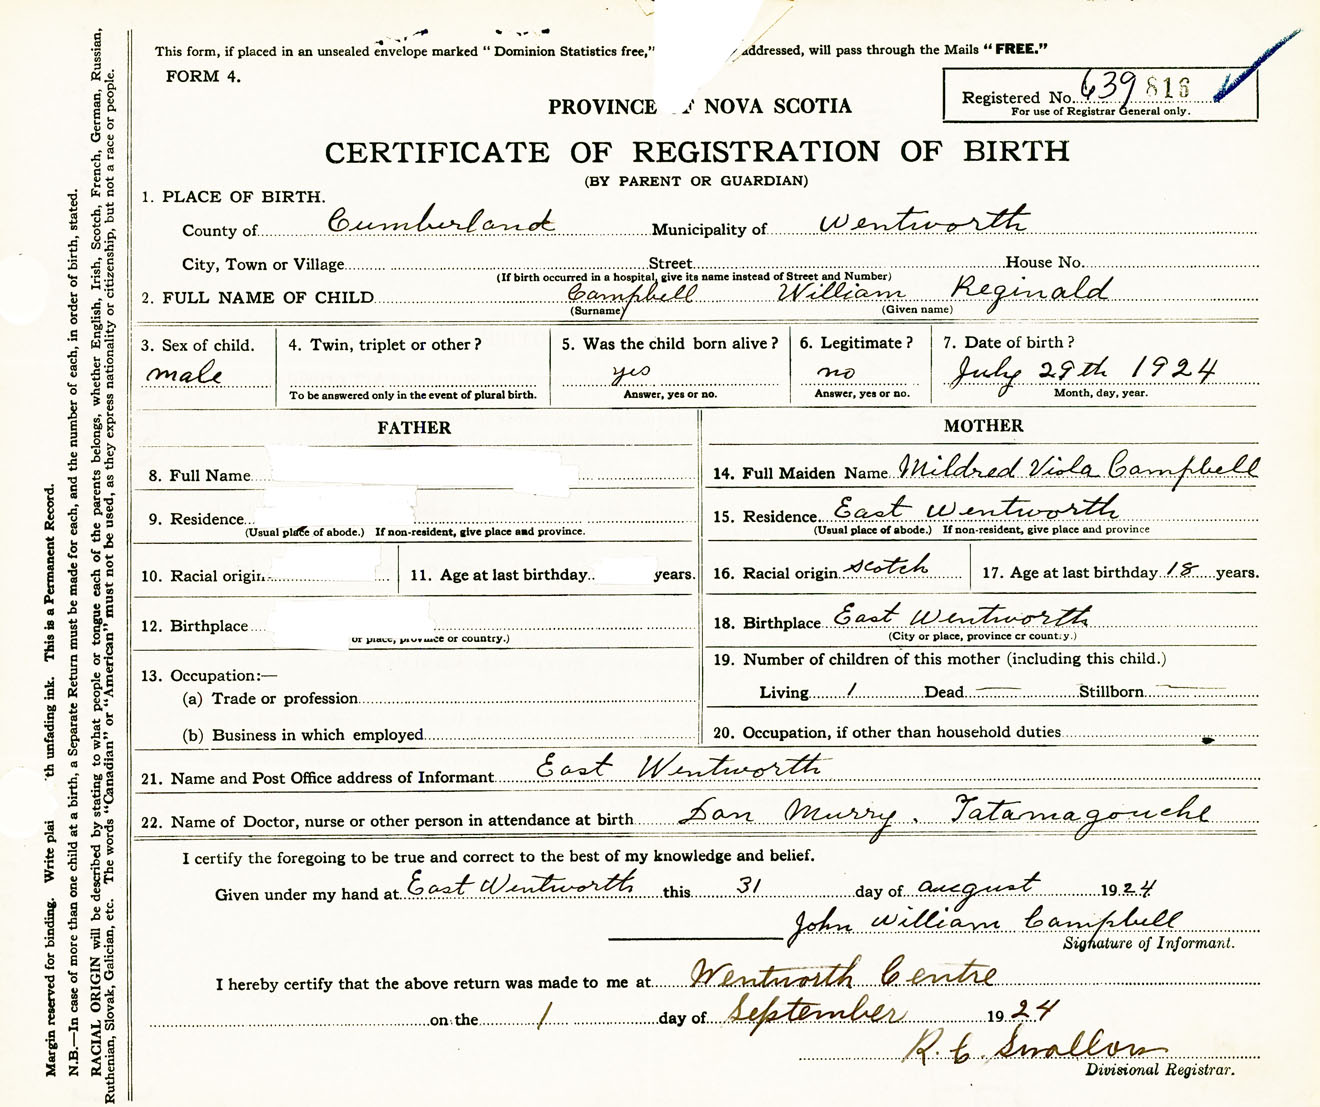 This form, if placed in an unsealed envelope marked "Dominion Statistics free," addressed, will pass through the Mails "FREE."
FORM 4.
Registered No. 639 816
For use of Registrar General only.
PROVINCE OF NOVA SCOTIA
CERTIFICATE OF REGISTRATION OF BIRTH
(BY PARENT OR GUARDIAN)
1. PLACE OF BIRTH.
County of Cumberland Municipality of Wentworth
City, Town or Village Street House No.
(If birth occurred in a hospital, give its name instead of Street and Number)
2. FULL NAME OF CHILD Campbell William Reginald
(Surname) (Given name)
3. Sex of child. 4. Twin, triplet or other? 5. Was the child born alive? 6. Legitimate? 7. Date of birth?
male yes no July 29th 1924
To be answered only in the event of plural birth. Answer, yes or no. Answer, yes or no. Month, day, year.
FATHER
8. Full Name
9. Residence
(Usual place of abode.) If non-resident, give place and province.
10. Racial origin 11. Age at last birthday years.
12. Birthplace
or place, province or country.)
13. Occupation:—
(a) Trade or profession
(b) Business in which employed
MOTHER
14. Full Maiden Name Mildred Viola Campbell
15. Residence East Wentworth
(Usual place of abode.) If non-resident, give place and province
16. Racial origin Scotch 17. Age at last birthday 18 years.
18. Birthplace East Wentworth
(City or place, province or country.)
19. Number of children of this mother (including this child.)
Living 1 Dead — Stillborn —
20. Occupation, if other than household duties
21. Name and Post Office address of Informant East Wentworth
22. Name of Doctor, nurse or other person in attendance at birth Dan Murry, Tatamagouche
I certify the foregoing to be true and correct to the best of my knowledge and belief.
Given under my hand at East Wentworth this 31 day of august 1924
John William Campbell
Signature of Informant.
I hereby certify that the above return was made to me at Wentworth Centre
on the 1 day of September 1924
R. C. Swallow
Divisional Registrar.
Margin reserved for binding. Write plai th unfading ink. This is a Permanent Record.
N.B.—In case of more than one child at a birth, a Separate Return must be made for each, and the number of each, in order of birth, stated.
RACIAL ORIGIN will be described by stating to what people or tongue each of the parents belongs, whether English, Irish, Scotch, French, German, Russian,
Ruthenian, Slovak, Galician, etc. The words "Canadian" or "American" must not be used, as they express nationality or citizenship, but not a race or people.